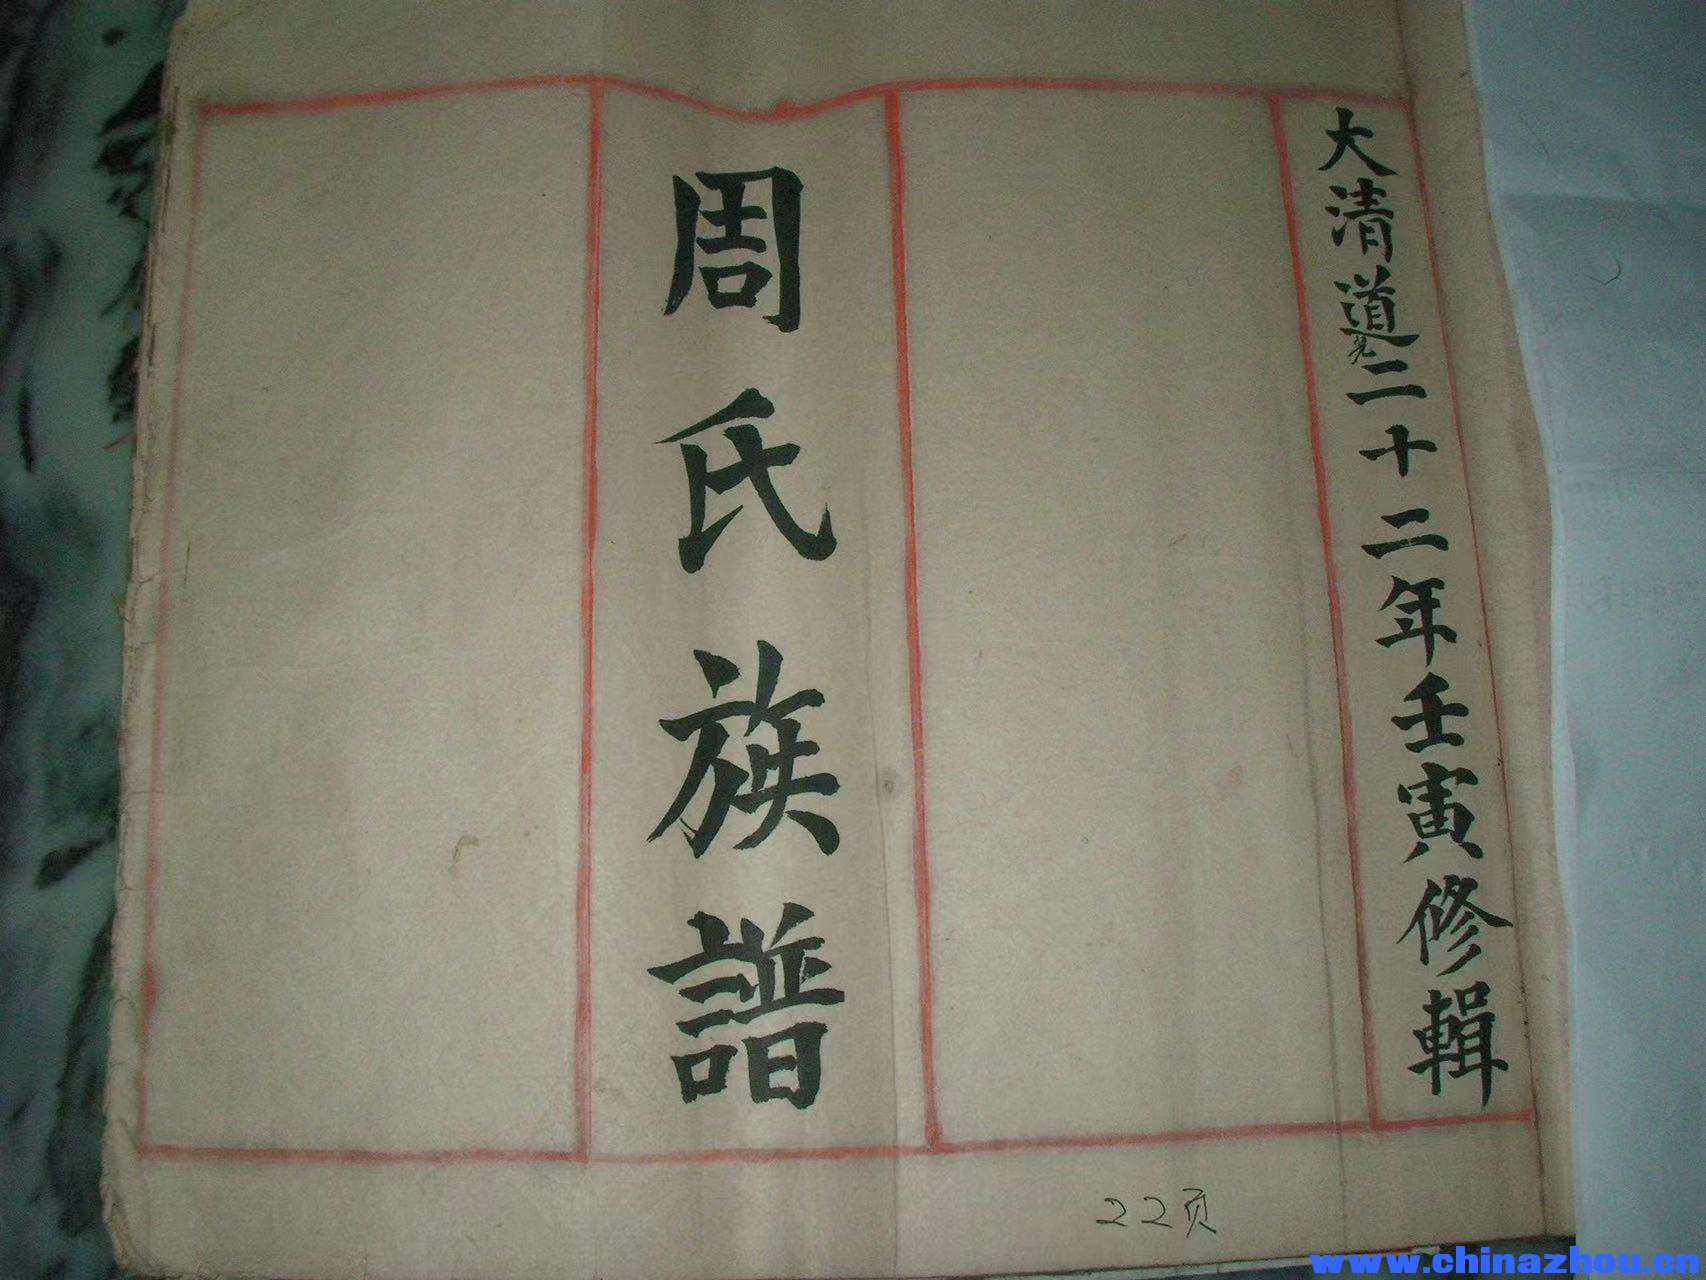 大清道光二十二年壬寅修輯
周氏族譜
22页
www.chinazhou.cn